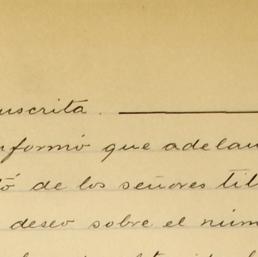 uscrita.
nformó que adelan
tó de los señores tit
deseo sobre el núm